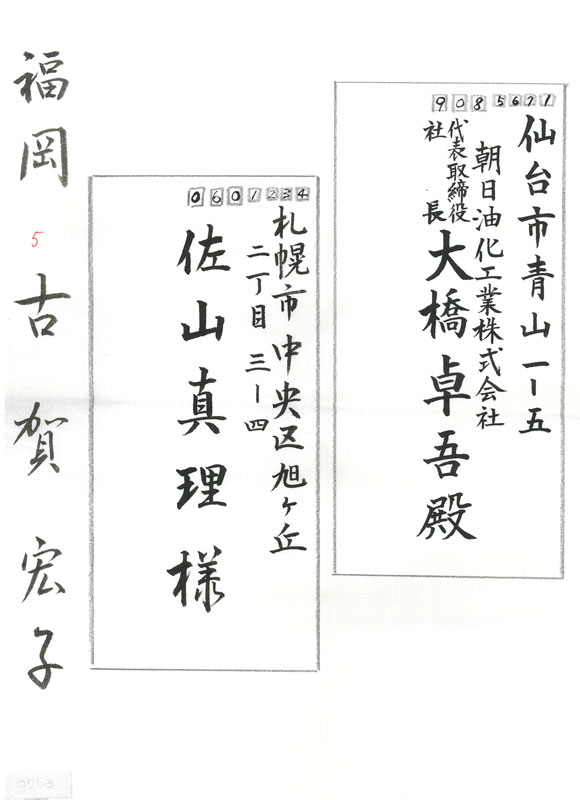 9085671
仙台市青山一ー五
朝日油化工業株式会社
代表取締役
社長
大橋卓吾殿
0601234
札幌市中央区旭ヶ丘
二丁目 三ー四
佐山真理様
福岡 5 古賀宏子